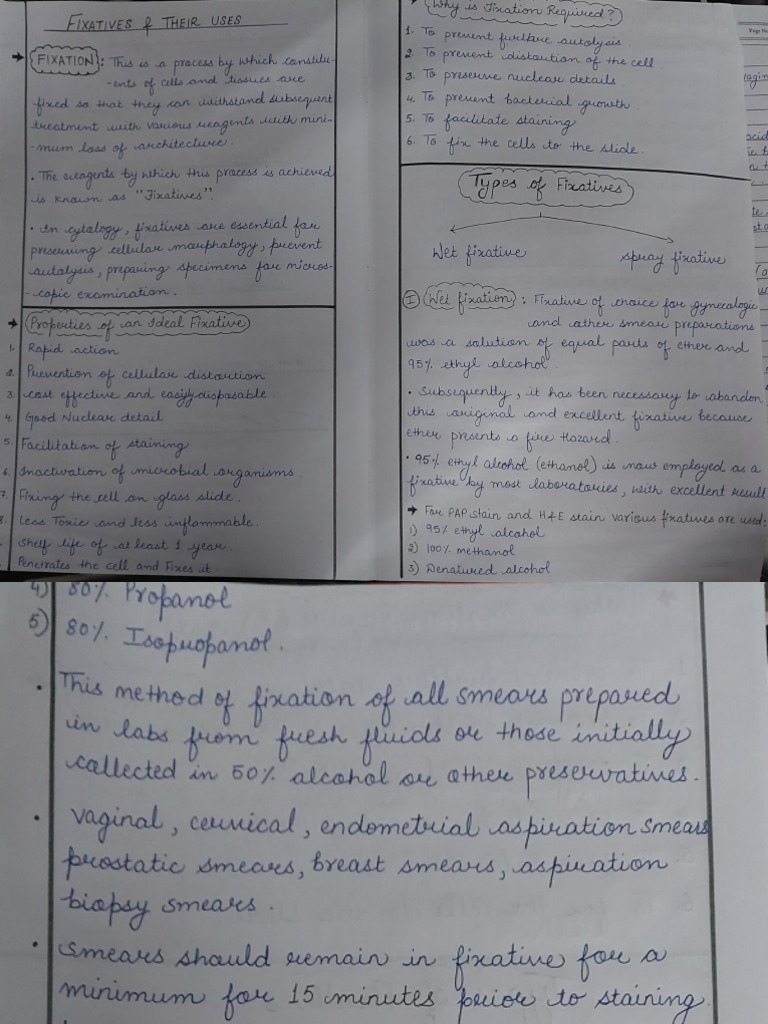 FIXATIVES & THEIR USES
→ FIXATION : This is a process by which constitu-
-ents of cells and tissues are
fixed so that they can withstand subsequent
treatment with various reagents with mini-
-mum loss of architecture.
• The reagents by which this process is achieved
is known as "Fixatives".
• In cytology, fixatives are essential for
preserving cellular morphology, prevent
autolysis, preparing specimens for micros-
-copic examination.
→ Properties of an Ideal Fixative
1. Rapid action
2. Prevention of cellular distortion
3. cost effective and easily disposable
4. Good Nuclear detail
5. Facilitation of staining
6. Inactivation of microbial organisms.
7. Fixing the cell on glass slide.
8. Less Toxic and less inflammable.
Shelf life of at least 1 year.
Penetrates the cell and Fixes it
Why is Fixation Required?
1. To prevent further autolysis.
2. To prevent distortion of the cell
3. To preserve nuclear details
4. To prevent bacterial growth
5. To facilitate staining
6. To fix the cells to the slide.
Types of Fixatives
Wet fixative spray fixative
I Wet fixation : Fixative of choice for gynecologic
and other smear preparations
was a solution of equal parts of ether and
95% ethyl alcohol.
• Subsequently, it has been necessary to abandon
this original and excellent fixative because
ether presents a fire Hazard.
• 95% ethyl alcohol (ethanol) is now employed as a
fixative by most laboratories, with excellent result
→ For PAP stain and H&E stain various fixatives are used:
1) 95% ethyl alcohol
2) 100% methanol
3) Denatured alcohol
4) 80% Propanol
5) 80% Isopropanol.
• This method of fixation of all smears prepared
in labs from fresh fluids or those initially
collected in 50% alcohol or other preservatives.
• Vaginal, cervical, endometrial aspiration smears
prostatic smears, breast smears, aspiration
biopsy smears.
• Smears should remain in fixative for a
minimum for 15 minutes prior to staining.